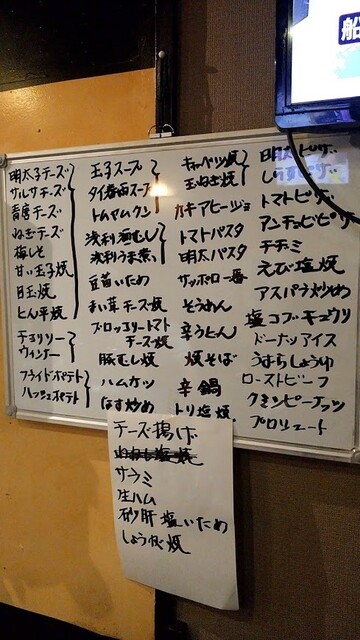 明太子チーズ
サルサチーズ
青唐チーズ
ねぎチーズ
梅しそ
甘い玉子焼
目玉焼
とん平焼
チョリソー
ウィンナー
フライドポテト
ハッシュポテト
玉子スープ
タイ春雨スープ
トムヤムクン
浅利酒むし
浅利うま煮
豆苗いため
まい茸チーズ焼
ブロッコリートマト
チーズ焼
豚むし焼
ハムカツ
なす炒め
キャベツ焼
玉ねぎ焼
カキアヒージョ
トマトパスタ
明太パスタ
サッポロ一番
そうめん
辛うどん
焼そば
辛鍋
トリ塩焼
明太ピザ
しらすピザ
トマトピザ
アンチョビピザ
チヂミ
えび塩焼
アスパラ炒め
塩コブキュウリ
ドーナツアイス
うずらしょうゆ
ローストビーフ
クミンピーナッツ
プロシュート
チーズ揚げ
サラミ
生ハム
砂肝塩いため
しょうが焼
船